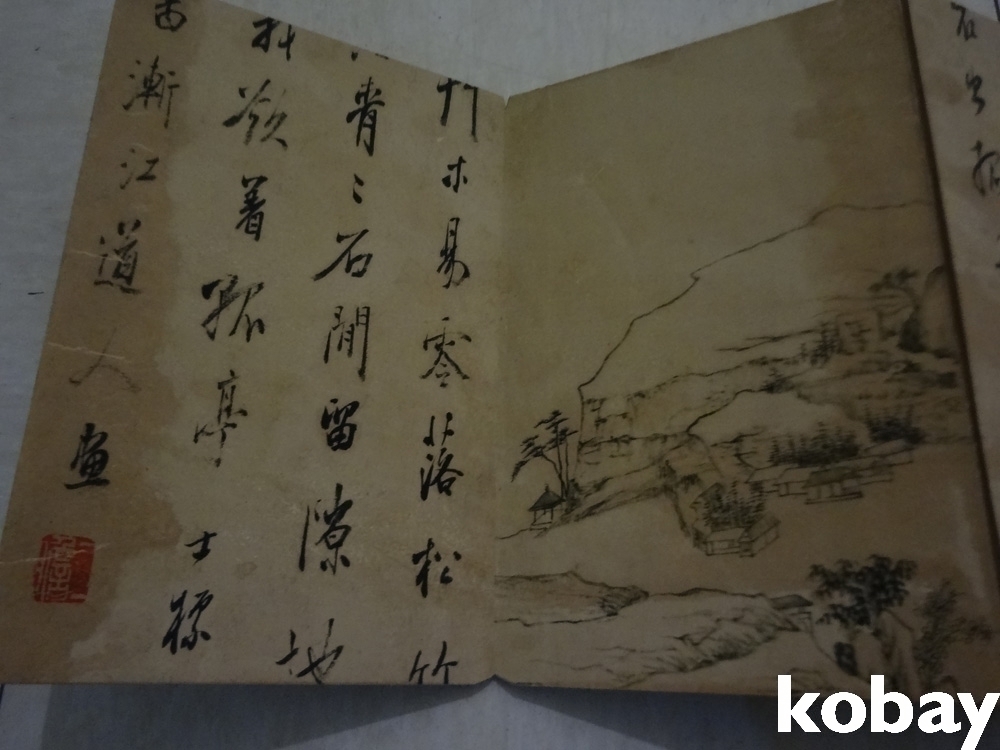 木易零落松竹
青〻石間留隙地
料欲着孤亭 士標
漸江道人畫
kobay